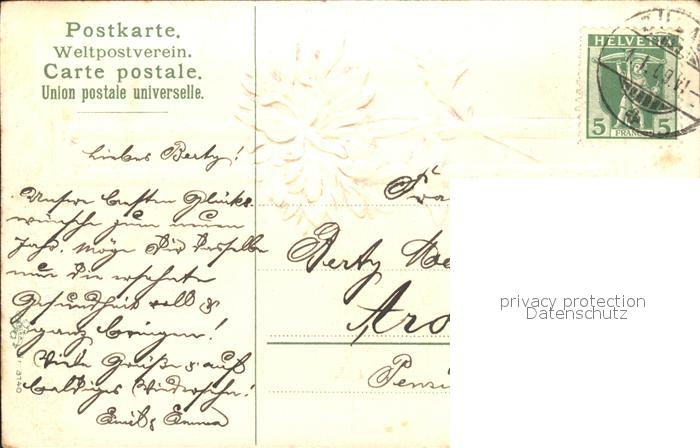 Postkarte.
Weltpostverein.
Carte postale.
Union postale universelle.
HELVETIA
5 FRANCO 5
Liebes Berty!
Unsre besten Glücks-
wünsche zum neuen
Jahr. Möge Dir dasselbe
nun die ersehnte
Gesundheit voll &
ganz bringen!
Viele Grüße & auf
baldiges Wiedersehn!
Emil & Emma
Fra
Berty
Aro
Pensi
privacy protection
Datenschutz